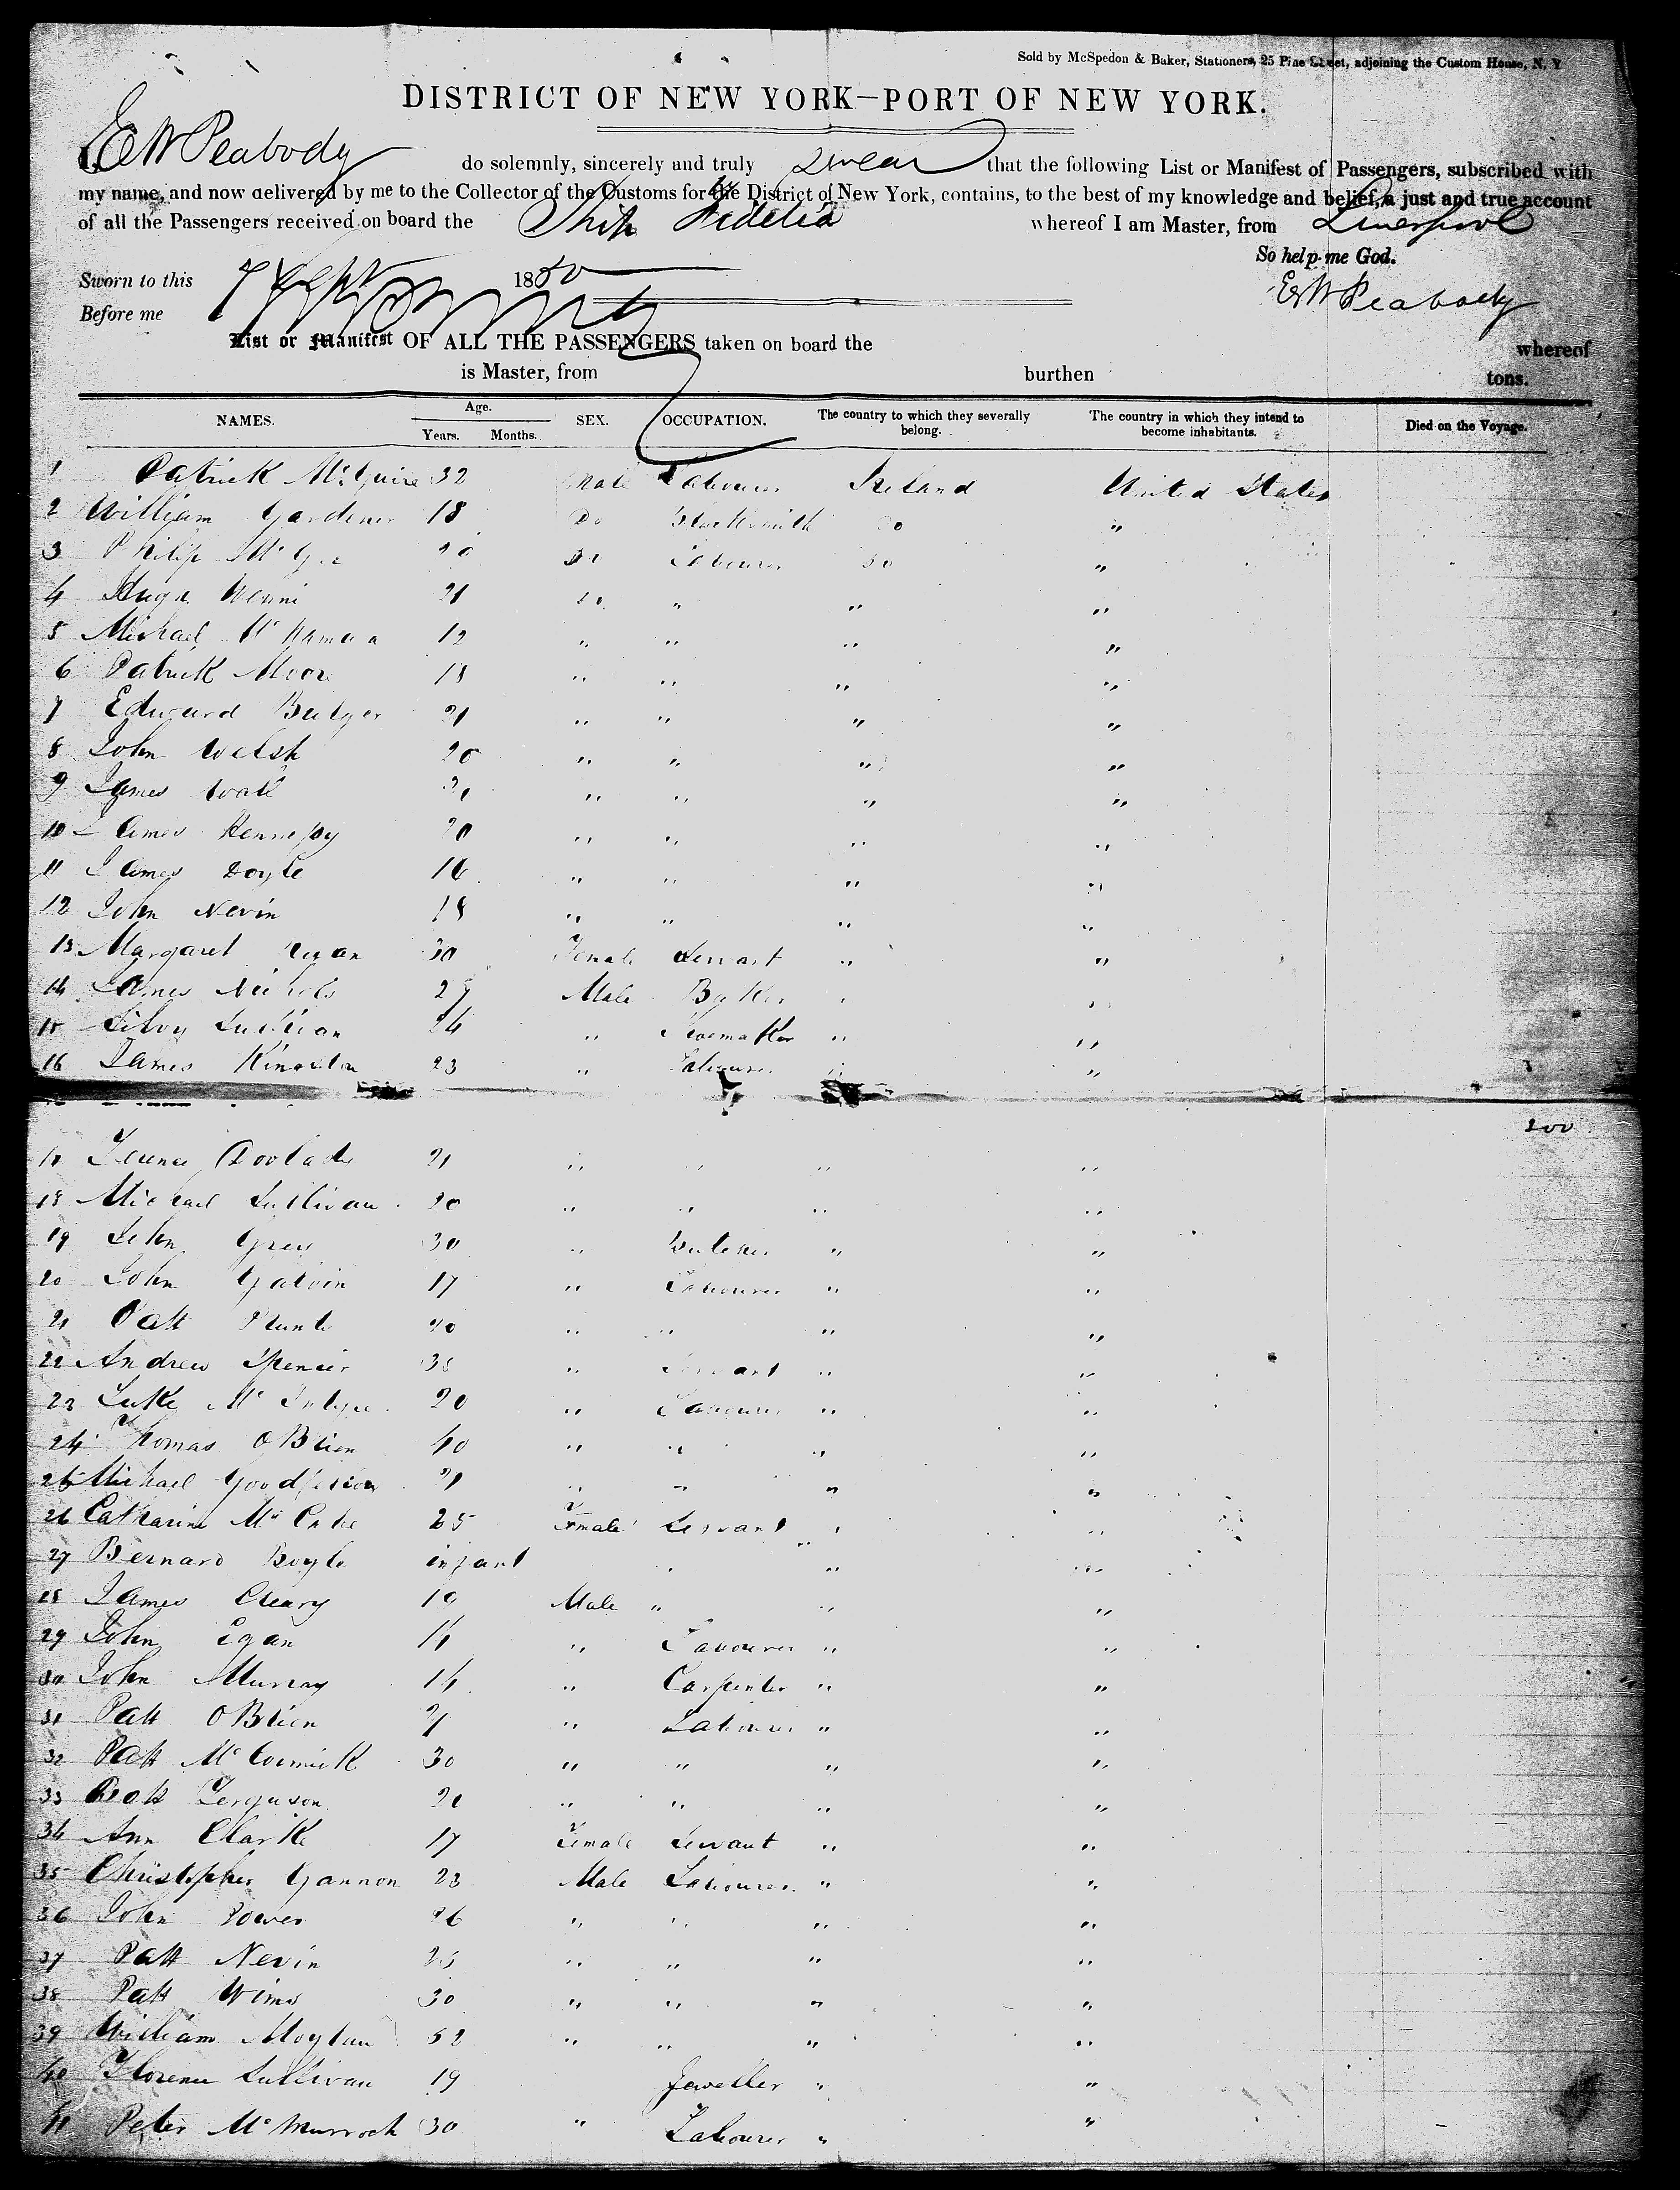 Sold by McSpedon & Baker, Stationers, 25 Pine Street, adjoining the Custom House, N. Y.
DISTRICT OF NEW YORK—PORT OF NEW YORK.
E W Peabody do solemnly, sincerely and truly swear that the following List or Manifest of Passengers, subscribed with
my name, and now delivered by me to the Collector of the Customs for the District of New York, contains, to the best of my knowledge and belief, a just and true account
of all the Passengers received on board the Ship Fidelia whereof I am Master, from Liverpool
So help me God.
Sworn to this 1850
E W Peabody
Before me
List or Manifest OF ALL THE PASSENGERS taken on board the whereof
is Master, from burthen tons.
NAMES. Age. Years. Months. SEX. OCCUPATION. The country to which they severally belong. The country in which they intend to become inhabitants. Died on the Voyage.
1 Patrick McGuire 32 Male Labourer Ireland United States
2 William Gardener 18 Do Blacksmith Do "
3 Philip McGee 20 Do Labourer Do "
4 Hugh 21 Do " " "
5 Michael 12 " " " "
6 Patrick Moore 18 " " " "
7 Edward Bulger 21 " " " "
8 John Welsh 20 " " " "
9 James Wall 21 " " " "
10 James Kennedy 20 " " " "
11 James Doyle 16 " " " "
12 John Nevin 18 " " " "
13 Margaret 30 Female Servant " "
14 James Nichols 27 Male Baker " "
15 Sullivan 24 " Shoemaker " "
16 James Kingston 23 " Labourer " "
200
17 Terence 21 " " " "
18 Michael Sullivan 20 " " " "
19 John Grey 30 " Butcher " "
20 John Galvin 17 " Labourer " "
21 Patt 20 " " " "
22 Andrew Spencer 35 " Servant " "
23 Luke 20 " Labourer " "
24 Thomas OBrien 40 " " " "
25 Michael 21 " " " "
26 Catharine McCabe 25 Female Servant " "
27 Bernard Boyle infant " " "
28 James Cleary 19 Male " " "
29 John Egan 14 " Labourer " "
30 John Murray 14 " Carpenter " "
31 Patt OBrien 21 " Labourer " "
32 Patt McCormick 30 " " " "
33 Ferguson 20 " " " "
34 Ann Clarke 17 Female Servant " "
35 Christopher Gannon 23 Male Labourer " "
36 John Power 26 " " " "
37 Patt Nevin 25 " " " "
38 Patt Wims 30 " " " "
39 William Moylan 52 " " " "
40 Florence Sullivan 19 Jeweller " "
41 Peter McMurroch 30 " Labourer " "